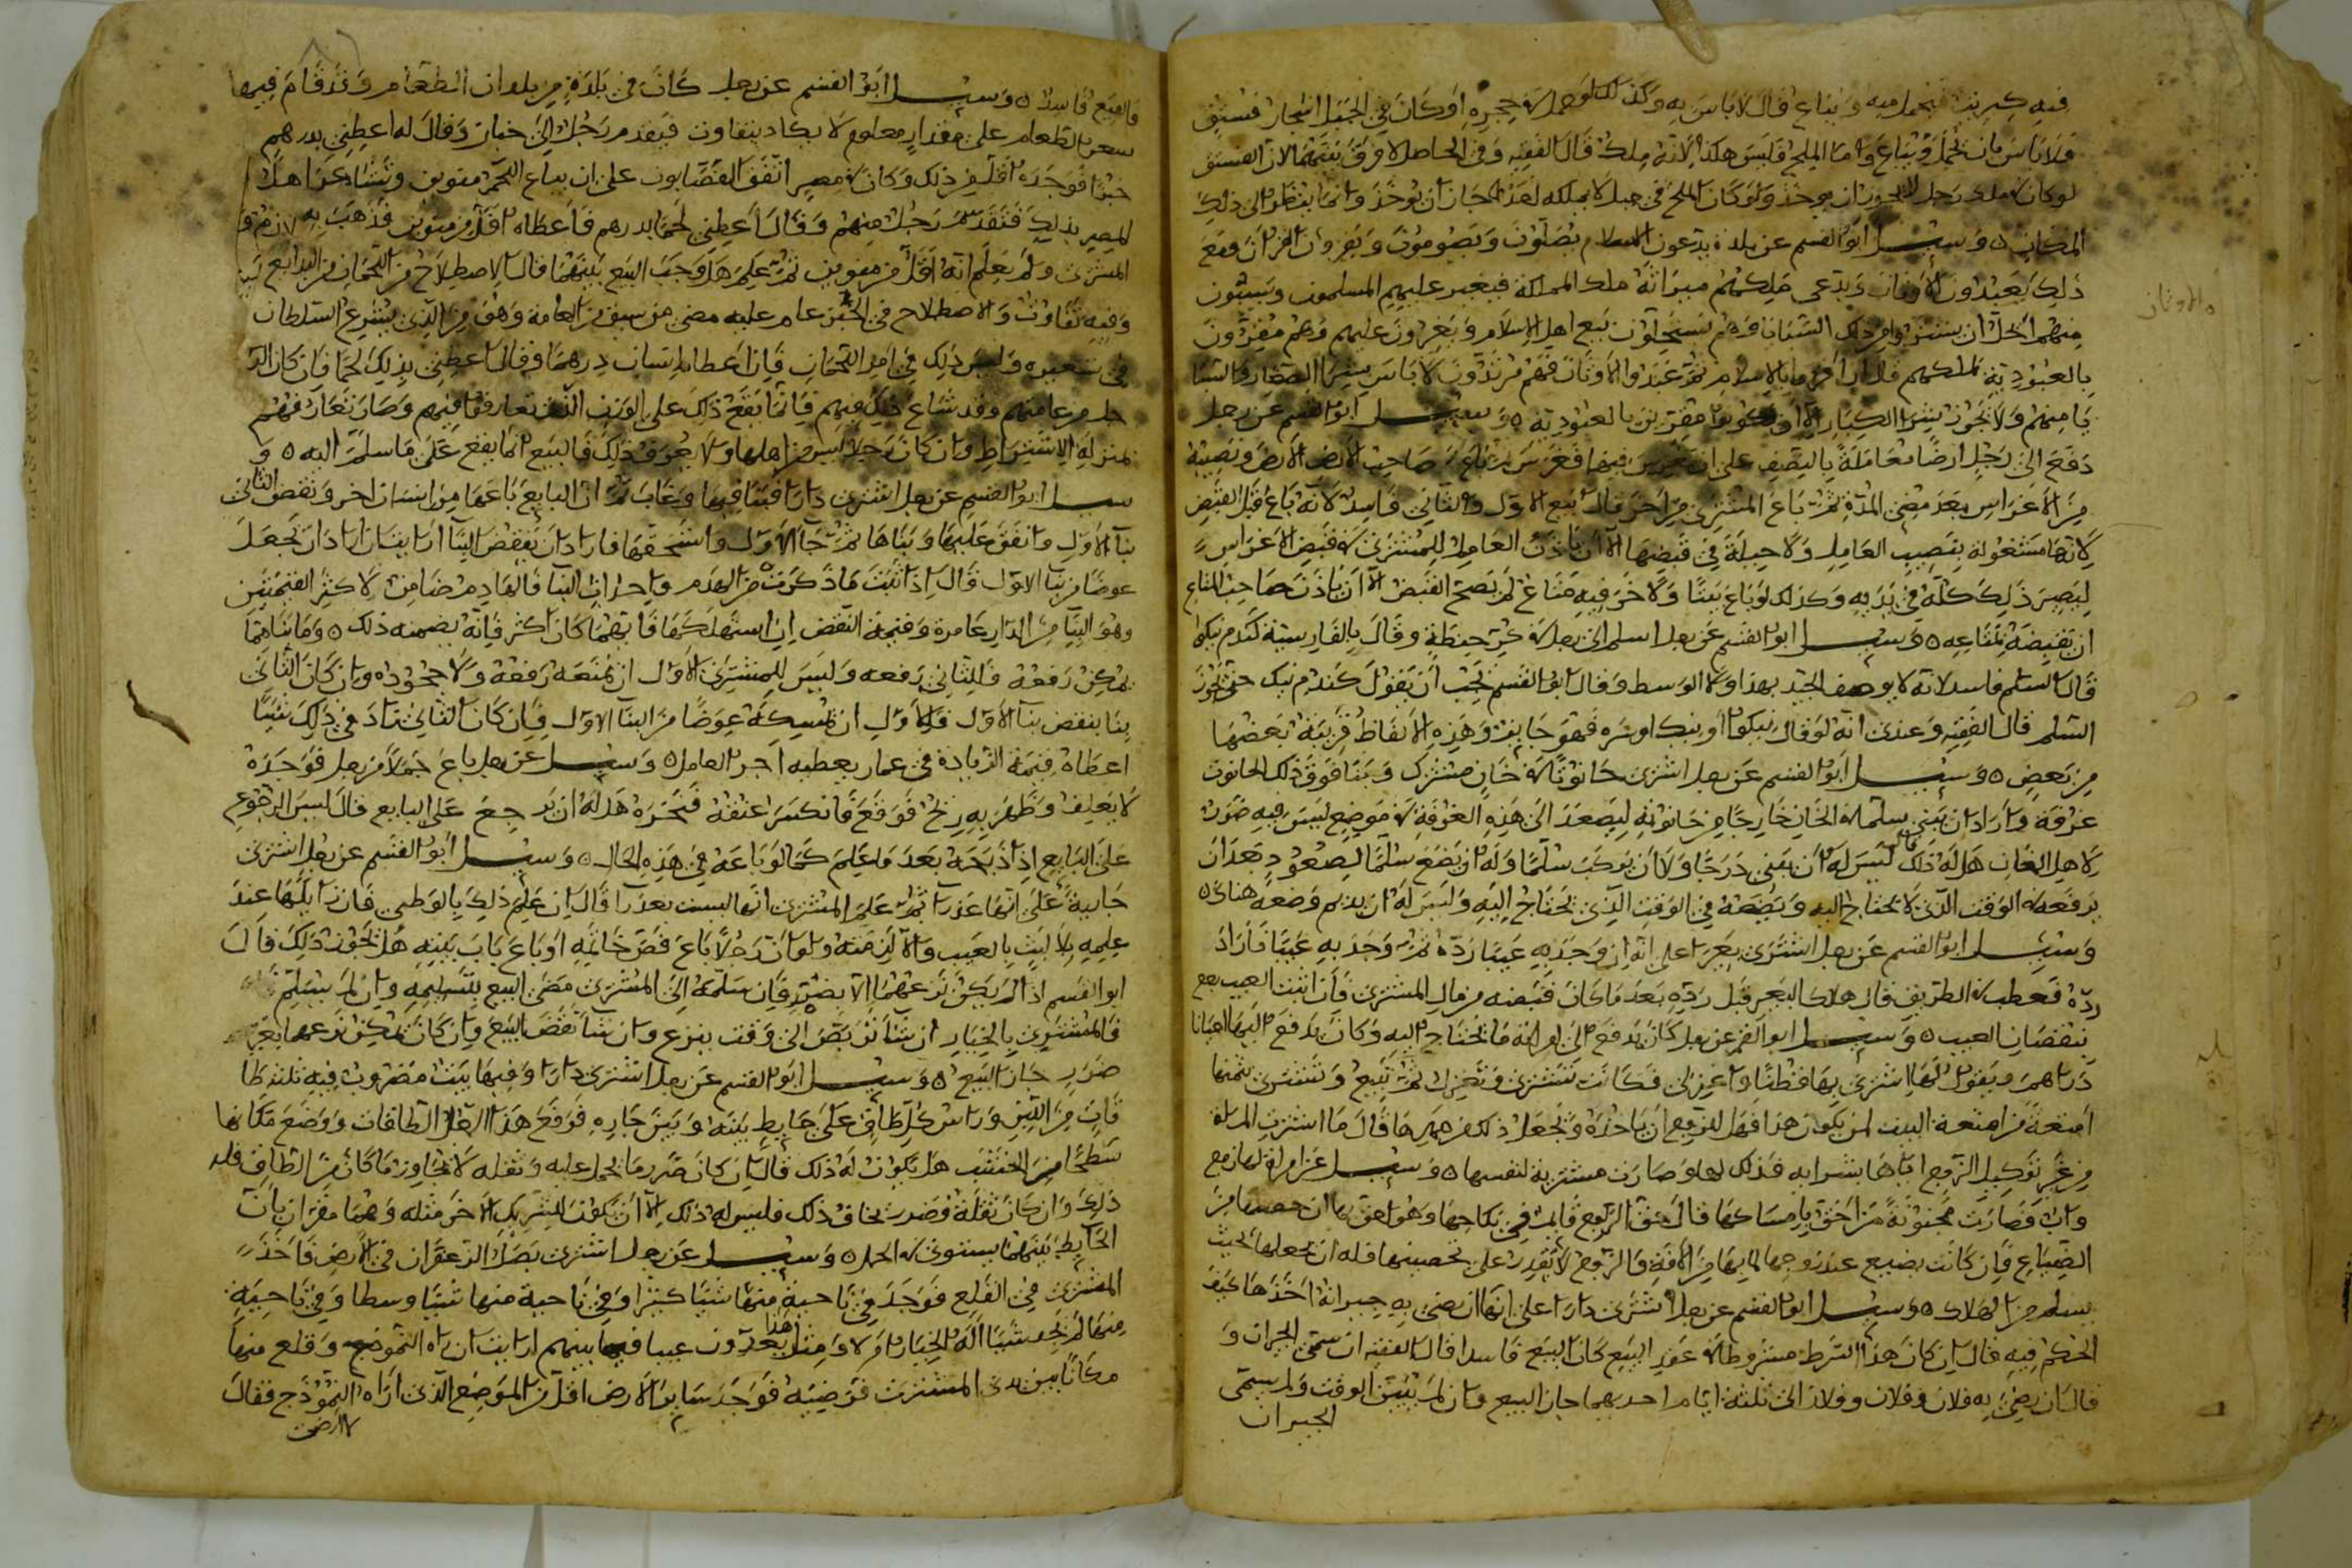 فيه كبريت فيحمل منه ويباع قال لا باس به وكذلك لو حملة حجره او كان في الجبل اشجار فستق
فلا باس بان يحمل ويباع واما الملح فليس هكذا لانه ملك قال الفقيه وفي الحاصل لا فرق بينهما لان الفستق
لو كان في ملك رجل لا يجوز ان يوخذ ولو كان الملح في جبل لا يملكه احد لجاز ان يوخذ وانما ينظر الى ذلك
المكان ٥ وسيل ابو القسم عن بلدة يدعون الاسلام يصلون ويصومون ويقرون القران ومع
ذلك يعبدون الاوثان ويدعي ملكهم ميراثه ملك المملكة فيغير عليهم المسلمون ويسبون
منهم ايحل ان يشتروا من ذلك السبايا وهم يستحلون بيع اهل الاسلام ويغيرون عليهم وهم مقرون
بالعبودية لملكهم قال ان اقروا بالاسلام ثم عبدوا الاوثان فهم مرتدون لا باس بشرا الصغار والنسا
يا منهم ولا يجوز بشرا الكبار الا ان يكونوا مقرين بالعبودية ٥ وسيل ابو القسم عن رجل
دفع الى رجل ارضا معاملة بالنصف على ان يغرس فيها فغرس ثم باع صاحب الارض الارض ونصيبه
من الاغراس بعد مضي المدة ثم باع المشتري من اخر قال بيع الاول والثاني فاسد لانه باع قبل القبض
لانها مشغولة بنصيب العامل ولا حيلة في قبضها الا ان ياذن العامل للمشتري في قبض الاغراس
ليصير ذلك كله في يديه وكذلك لو باع بيتا ولاخر فيه متاع لم يصح القبض الا ان ياذن صاحب المتاع
ان يقبضه بمتاعه ٥٥ وسيل ابو القسم عن رجل اسلم الى رجل في كر حنطة وقال بالفارسية كندم نيكوا
قال السلم فاسد لانه لا يوصف الجيد بهذا ولا الوسط وقال ابو القسم يجب ان يقول كندم نيك حتى يجوز
السلم قال الفقيه وعندي انه لو قال نيكوا او نيك او سره فهو جايز وهذه الالفاظ قريبة بعضها
من بعض ٥ وسيل ابو القسم عن رجل اشترى حانوتا في خان مشترك وبنا فوق ذلك الحانوت
غرفة واراد ان يبني سلما في الخان خارجا من حانوته ليصعد الى هذه الغرفة في موضع ليس فيه ضرر
لاهل الخان هل له ذلك قال ليس له ان يبني درجا ولا ان يركب سلما وله ان يضع سلما لصعود بعد ان
يرفعه في الوقت الذي لا يحتاج اليه ويضعه في الوقت الذي يحتاج اليه وليس له ان يديم وضعه هناك ٥
وسيل ابو القسم عن رجل اشترى بعيرا على انه ان وجد به عيبا رده ثم وجد به عيبا فاراد
رده فعطب في الطريق قال هلاك البعير قبل رده بعد ما كان قبضه من مال المشتري فان اثبت العيب رجع
بنقصان العيب ٥ وسيل ابو القسم عن رجل كان يدفع الى امراته ما تحتاج اليه وكان يدفع اليها احيانا
دراهم ويقول لها اشتري بها قطنا واغزلي فكانت تشتري وتغزل ثم تبيع وتشتري بثمنها
امتعة من امتعة البيت لمن يكون هذا فهل للزوج ان ياخذه ويجعل ذلك من مهرها قال ما اشترت المراة
من غير توكيل الزوج اياها بشرايه فذلك لها وصارت مشترية لنفسها ٥ وسيل عن امراة لها زوج
واب فصارت مجنونة من احق بامساكها قال حق الزوج قايم في نكاحها وهو احق بها ان حصنها من
الضياع فان كانت تضيع عند زوجها لما بها من الافة والزوج لا يقدر على تحصينها فله ان يجعلها بحيث
يسلم من الهلاك ٥ وسيل ابو القسم عن رجل اشترى دارا على انها ان رضي به جيرانه اخذها كيف
الحكم فيه قال ان كان هذا الشرط مشروطا في عقد البيع كان البيع فاسدا قال الفقيه ان سمى الجيران و
قال ان رضي به فلان وفلان وفلان الى ثلثة ايام احد بهما جاز البيع وان لم يبين الوقت ولم يسمى
الجيران
والاوثان
فالبيع فاسد ٥ وسيل ابو القسم عن رجل كان في بلدة من بلدان الطعام وقد قام فيها
سعر الطعام على مقدار معلوم لا يكاد يتفاوت فيقدم رجل الى خباز وقال له اعطني بدرهم
خبزا فوجده اقل من ذلك وكان في مصر اتفق القصابون على ان يباع اللحم منوين وتشاهر اهل
المصر بذلك فتقدم رجل منهم وقال اعطني لحما بدرهم فاعطاه اقل من منوين فذهب به
المشتري ولم يعلم انه اقل من منوين ثم علم هل وجب البيع بينهما قال الاصطلاح من اللحمان من البدايع
وفيه تفاوت والاصطلاح في الخبز عام عليه مضى من سبق من العامة وهو من الذي يشرع السلطان
في تسعيره وليس ذلك في امر اللحمان فان اعطاه انسان درهما وقال اعطني بذلك لحما فان كان
من عامتهم وقد شاع ذلك فيهم فانما يقع ذلك على الوزن الذي تعارفوا فيهم وصار تعارفهم
بمنزلة الاشتراط وان كان رجلا ليس من اهلها ولا يعرف ذلك فالبيع انما يقع على ما سلم اليه ٥ و
سيل ابو القسم عن رجل اشترى دارا فبنا فيها وغاب ثم ان البايع باعها من انسان اخر ونقض الثاني
بنا الاول وانفق عليها وبناها ثم جا الاول واستحقها فاراد ان ينقض البنا ارايت ان اراد ان يجعل
عوضا من بنا الاول قال اذا ثبت ما ذكرت من الهدم واحداث البنا فالهادم ضامن لاكثر القيمتين
وهو البنا من الدار عامرة وقيمة النقض ان استهلكها فايهما كان اكثر فانه يضمنه ذلك ٥ وما
يمكن رفعه فللثاني رفعه وليس للمشتري الاول ان يمنعه رفعه ولا جحوده وان كان الثاني
بنا بنقض بنا الاول فللاول ان يمسكه عوضا من البنا الاول فان كان الثاني زاد في ذلك شيا
اعطاه قيمة الزيادة في عمار يعطيه اجر العامل ٥ وسيل عن رجل باع جملا من رجل فوجده
لا يعلف وظهر به ريح فوقع فانكسر عنقه فنحره هل له ان يرجع على البايع قال ليس الرجوع
على البايع اذا ذبحه بعد ما علم كما لو باعه في هذه الحال ٥ وسيل ابو القسم عن رجل اشترى
جارية على انها عذرا ثم علم المشتري انها ليست بعذرا قال ان علم ذلك بالوطي فان زايلها عند
علمه بلا لبث بالعيب والا لزمته ولو ان رجلا باع فص خاتمه او باع باب بيته هل يجوز ذلك قال
ابو القسم اذا لم يكن نزعهما الا بضرر فان سلمه الى المشتري مضى البيع بتسليمه وان لم يسلم
فالمشتري بالخيار ان شا تربص الى وقت ينزع وان شا نقض البيع وان كان يمكن نزعهما بغير
ضرر جاز البيع ٥ وسيل ابو القسم عن رجل اشترى دارا وفيها بيت مضروب فيه ثلثة طا
قات من اللبن وراس كل طاق على حايط بينه وبين جاره فرفع هذا الرجل الطاقات ووضع مكانها
سطحا من الخشب هل يكون له ذلك قال ان كان ضرر ما يحمل عليه وثقله لا يجاوز ما كان من الطاق فله
ذلك وان كان ثقله وضرر يخاف ذلك فليس له ذلك الا ان يكون للشريك الاخر مثله وهما مقران بان
الحايط بينهما يستوي في الحمل ٥ وسيل عن رجل اشترى بصل الزعفران في الارض فاخذ
المشتري في القلع فوجد في ناحية منها شيا كثيرا وفي ناحية منها شيا وسطا وفي ناحية
منها لم يجد شيا اله الخيار ام لا ومثل هذا يعدون عيبا فيما بينهم ارايت ان اراه النموذج وقلع منها
مكانا بين يدي المشتري فرضيه فوجد ساير الارض اقل من الموضع الذي اراه النموذج فقال
الارض